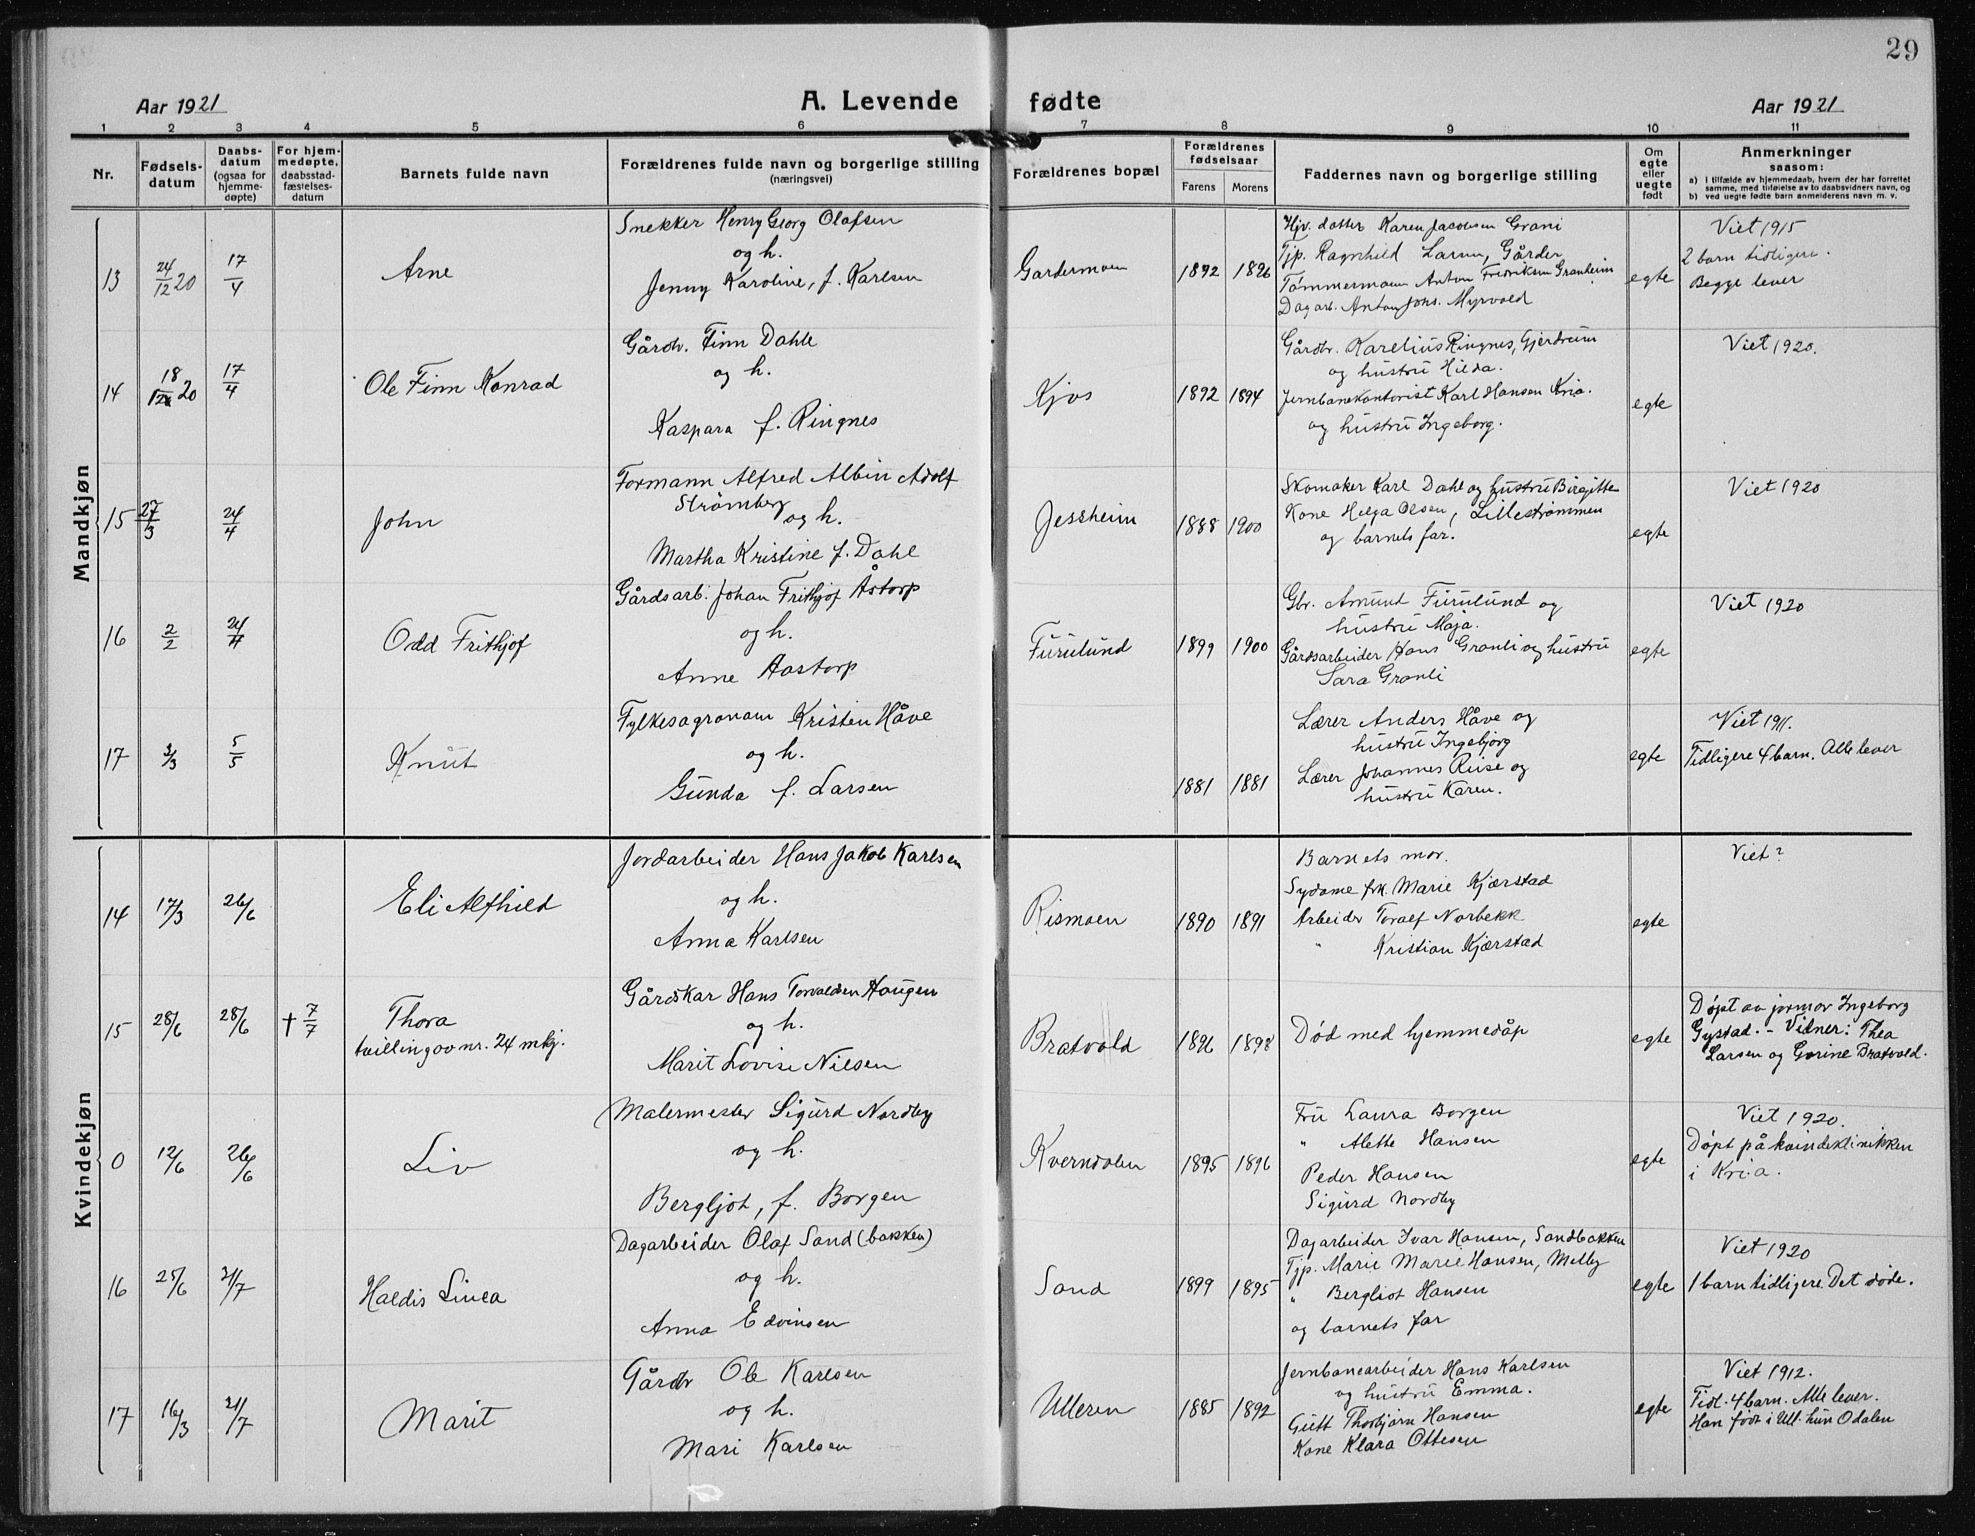 29
Aar 1921
A. Levende fødte
Aar 1921
1 2 3 4 5 6 7 8 9 10 11
Nr.
Fødsels-
datum
Daabs-
datum
(ogsaa for
hjemme-
døpte)
For hjem-
medøpte,
daabsstad-
fæstelses-
datum
Barnets fulde navn
Forældrenes fulde navn og borgerlige stilling
(næringsvei)
Forældrenes bopæl
Forældrenes
fødselsaar
Farens Morens
Faddernes navn og borgerlige stilling
Om
egte
eller
uegte
født
Anmerkninger
saasom:
a) I tilfælde av hjemmedaab, hvem der har forrettet
samme, med tilføielse av to daabsvidners navn, og
b) ved uegte fødte barn anmelderens navn m. v.
Mandkjøn
13
24/12 20
17/4
Arne
Snekker Henry Georg Olafsen
og h.
Jenny Karoline, f. Karlsen
Gardermoen
1892 1896
Hjv. datter Karen Jacobsen Grani
Tjp. Ragnhild Larsen, Gårder
Tømmermann Anton Fredriksen Granheim
Dagarb. Anton Johs. Myrvold
egte
Viet 1915
2 barn tidligere.
Begge lever
14
18/12 20
17/4
Ole Finn Konrad
Gårdbr. Finn Dahle
og h.
Kaspara f. Ringnes
Kjos
1892 1894
Gårdbr. Karelius Ringnes, Gjerdrum
og hustru Hilda.
Jernbanekontorist Karl Hansen Kria.
og hustru Ingeborg.
egte
Viet 1920.
15
27/3
24/4
John
Formann Alfred Albin Adolf
Strømberg
og h.
Martha Kristine f. Dahl
Jessheim
1888 1900
Skomaker Karl Dahl og hustru Birgitte
Kone Helga Olsen, Lillestrømmen
og barnets far.
egte
Viet 1920
16
2/2
24/4
Odd Frithjof
Gårdsarb. Johan Frithjof Åstorp
og h.
Anne Aastorp
Furulund
1899 1900
Gbr. Amund Furulund og
hustru Maja.
Gårdsarbeider Hans Granli og hustru
Sara Granli
egte
Viet 1920
17
3/3
5/5
Knut
Fylkesagronom Kristen Håve
og h.
Gunda f. Larsen
1881 1881
Lærer Anders Håve og
hustru Ingebjorg
Lærer Johannes Ruse og
hustru Karen.
egte
Viet 1911.
Tidligere 4 barn. Alle lever
Kvindekjøn
14
17/3
26/6
Eli Alfhild
Jordarbeider Hans Jakob Karlsen
og h.
Anna Karlsen
Rismoen
1890 1891
Barnets mor.
Sydame frk. Marie Kjærstad
Arbeider Toralf Norbekk
" Kristian Kjærstad
egte
Viet?
15
28/6
28/6
† 7/7
Thora
tvilling av nr. 24 mkj.
Gårdskar Hans Torvaldsen Haugen
og h.
Marit Lovise Nielsen
Bratvold
1896 1898
Død med hjemmedåp
egte
Døpt av jormor Ingeborg
Gystad. - Vidner: Thea
Larsen og Gorine Bratvold.
0
12/6
26/6
Liv
Malermester Sigurd Nordby
og h.
Bergljot, f. Borgen
Kverndalen
1895 1896
Fru Laura Borgen
" Alette Hansen
Peder Hansen
Sigurd Nordby
egte
Viet 1920.
Døpt på kvindeklinikken
i Kria.
16
25/6
21/7
Haldis Linea
Dagarbeider Olaf Sand (bakken)
og h.
Anna Edvinsen
Sand
1899 1895
Dagarbeider Ivar Hansen, Sandbakken
Tjp. Marie Marie Hansen, Melby
" Bergliot Hansen
og barnets far
egte
Viet 1920
1 barn tidligere. Det døde.
17
16/3
21/7
Marit
Gårdbr Ole Karlsen
og h.
Mari Karlsen
Ulleren
1885 1892
Jernbanearbeider Hans Karlsen
og hustru Emma.
Gutt Thorbjørn Hansen
Kone Klara Ottesen
egte
Viet 1912.
Tidl. 4 barn. Alle lever.
Han født i Ull. hun Odalen